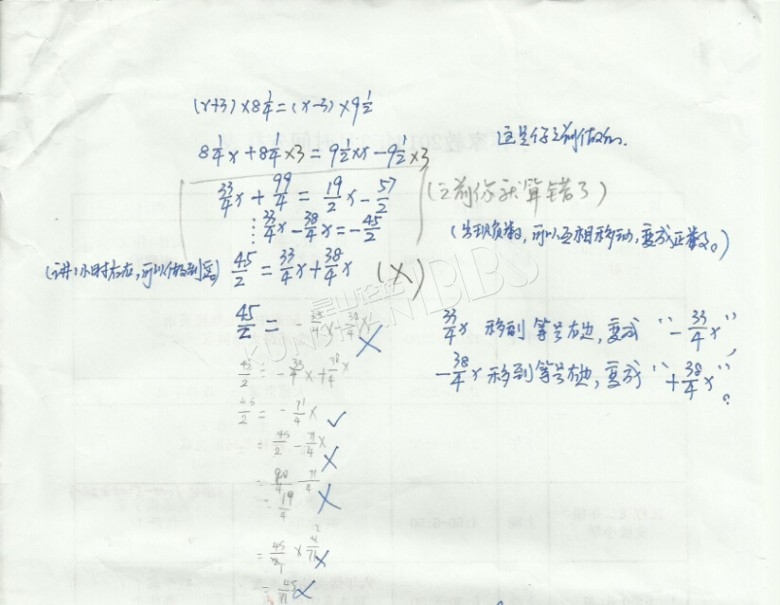 (x+3)×8¼=(x-3)×9½
8¼x+8¼×3=9½×x-9½×3
这是你之前做的.
33/4x+99/4=19/2x-57/2
(之前你就算错了)
33/4x-38/4x=-45/2
(出现负数,可以互相移动,变成正数。)
(讲1小时左右,可以做到这)
45/2=33/4x+38/4x (X)
45/2=-33/4x-38/4x X
33/4x 移到等号右边,变成"-33/4x",
-38/4x 移到等号右边,变成"+38/4x"。
45/2=-33/4x+38/4x
45/2=-71/4x ✓
=45/2-71/4x X
=90/4-71/4
=19/4 X
X
=45/71 X
KUNSHAN BBS